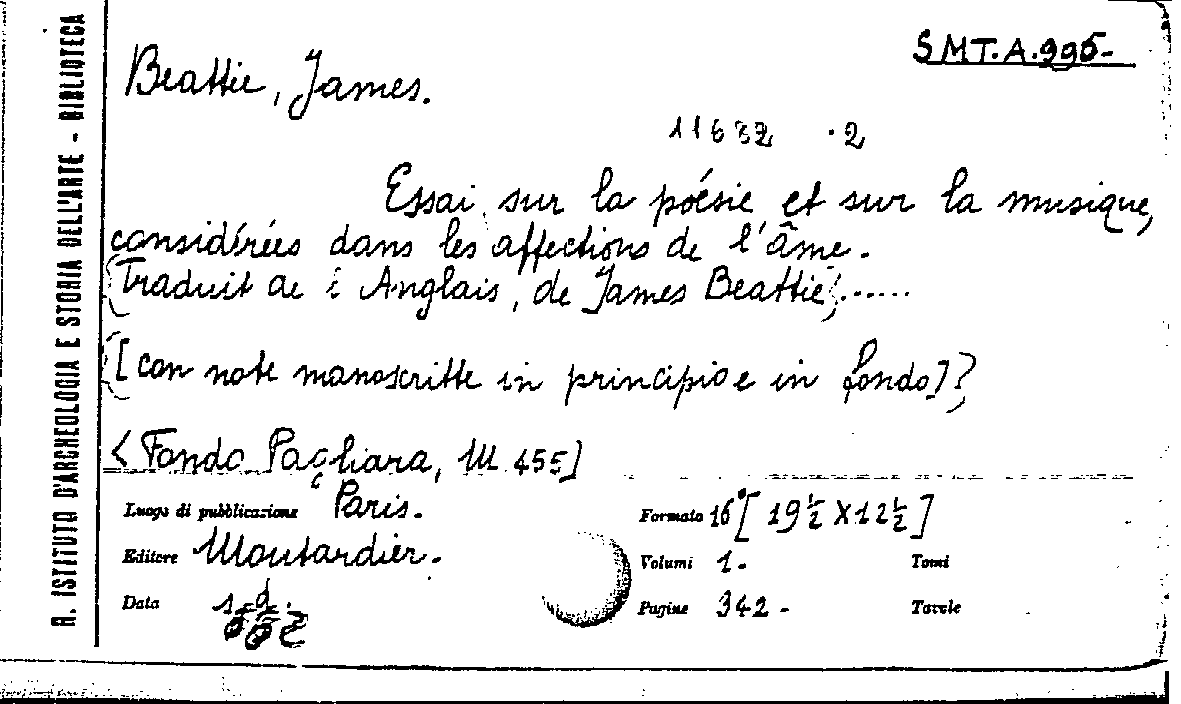 R. ISTITUTO D'ARCHEOLOGIA E STORIA DELL'ARTE - BIBLIOTECA
SMT.A.995-
Beattie, James.
11632 .2
Essai sur la poésie et sur la musique,
considérées dans les affections de l'âme.
(Traduit de l Anglais, de James Beattie)......
([con note manoscritte in principio e in fondo])
<Fondo Pagliara, III 455]
Luogo di pubblicazione Paris.
Formato 16° [19½ X 12½]
Editore Moutardier.
Volumi 1.-
Tomi
Data s.d.
Pagine 342-
Tavole